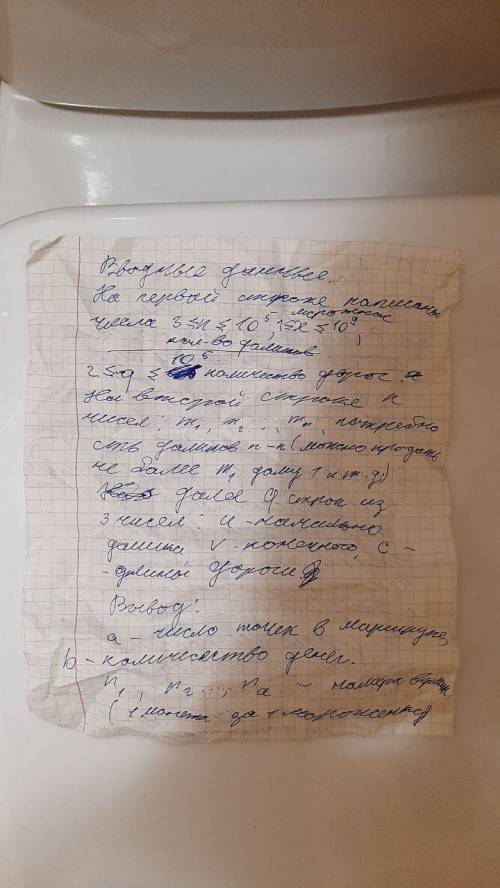 Вводные данные.
На первой строке написаны
числа 3 ≤ n ≤ 10^5, 1 ≤ x ≤ 10^9 мороженое
кол-во домиков
2 ≤ q ≤ 10^5 количество дорог.
На второй строке n
чисел: m1, m2 ..., mn, потребно
сть домиков n-n (можно продать
не более m1 дому 1 и т.д.)
далее q строк из
3 чисел: u - начально
домика v - конечного, c -
- длины дороги
Вывод:
a - число точек в маршруте,
b - количество денег.
n1.., n2 ..., na - номера
(1 монета за 1 мороженое)